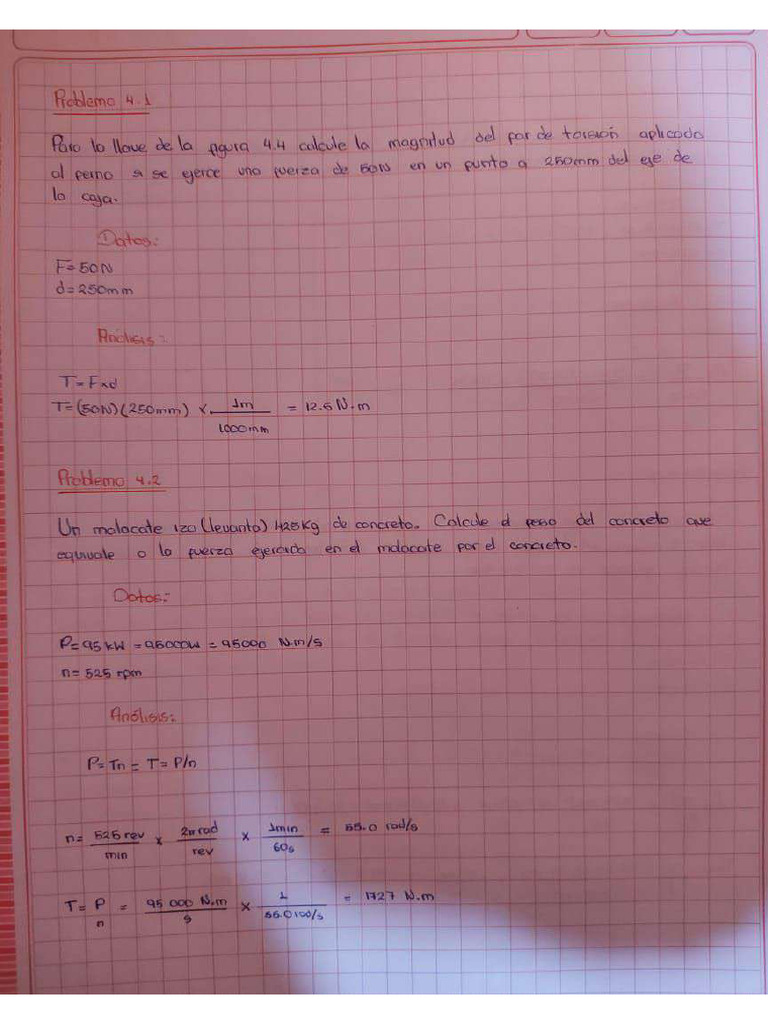 Problema 4.1
Para la llave de la figura 4.4 calcule la magnitud del par de torsión aplicado
al perno si se ejerce una fuerza de 50N en un punto a 250mm del eje de
la caja.
Datos:
F=50N
d=250mm
Análisis:
T=F×d
T=(50N)(250mm) × 1m/1000mm = 12.5 N.m
Problema 4.2
Un malacate izo (levanta) 425Kg de concreto. Calcule el peso del concreto que
equivale a la fuerza ejercida en el malacate por el concreto.
Datos:
P=95kW =95000W = 95000 N.m/s
n=525 rpm
Análisis:
P=Tn = T=P/n
n= 525 rev/min × 2π rad/rev × 1min/60s = 55.0 rad/s
T= P/n = 95 000 N.m/s × 1/55.0 rad/s = 1727 N.m